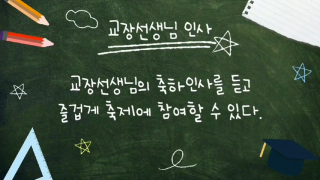 교장선생님 인사
교장선생님의 축하인사를 듣고
즐겁게 축제에 참여할 수 있다.